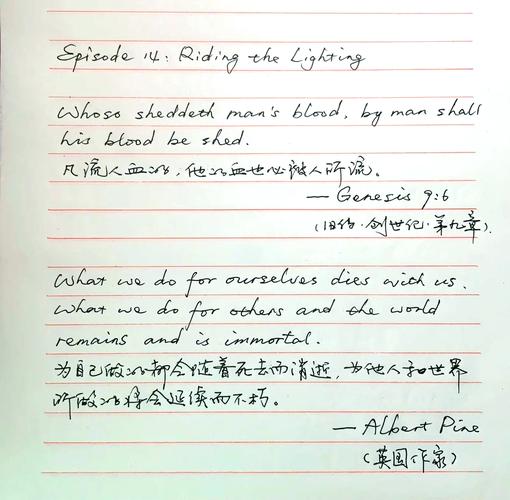 Episode 14: Riding the Lighting
Whoso sheddeth man's blood, by man shall
his blood be shed.
凡流人血的，他的血也必被人所流。
— Genesis 9:6
(旧约·创世纪·第九章).
What we do for ourselves dies with us.
What we do for others and the world
remains and is immortal.
为自己做的都会随着死去而消逝，为他人和世界
所做的将会延续而不朽。
— Albert Pine
(英国作家)